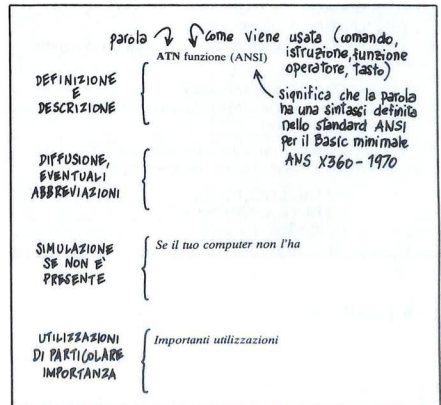 parola
come viene usata (comando,
istruzione, funzione
operatore, tasto)
ATN funzione (ANSI)
significa che la parola
ha una sintassi definita
nello standard ANSI
per il Basic minimale
ANS X360-1970
DEFINIZIONE
E
DESCRIZIONE
DIFFUSIONE,
EVENTUALI
ABBREVIAZIONI
SIMULAZIONE
SE NON E'
PRESENTE
Se il tuo computer non l'ha
UTILIZZAZIONI
DI PARTICOLARE
IMPORTANZA
Importanti utilizzazioni